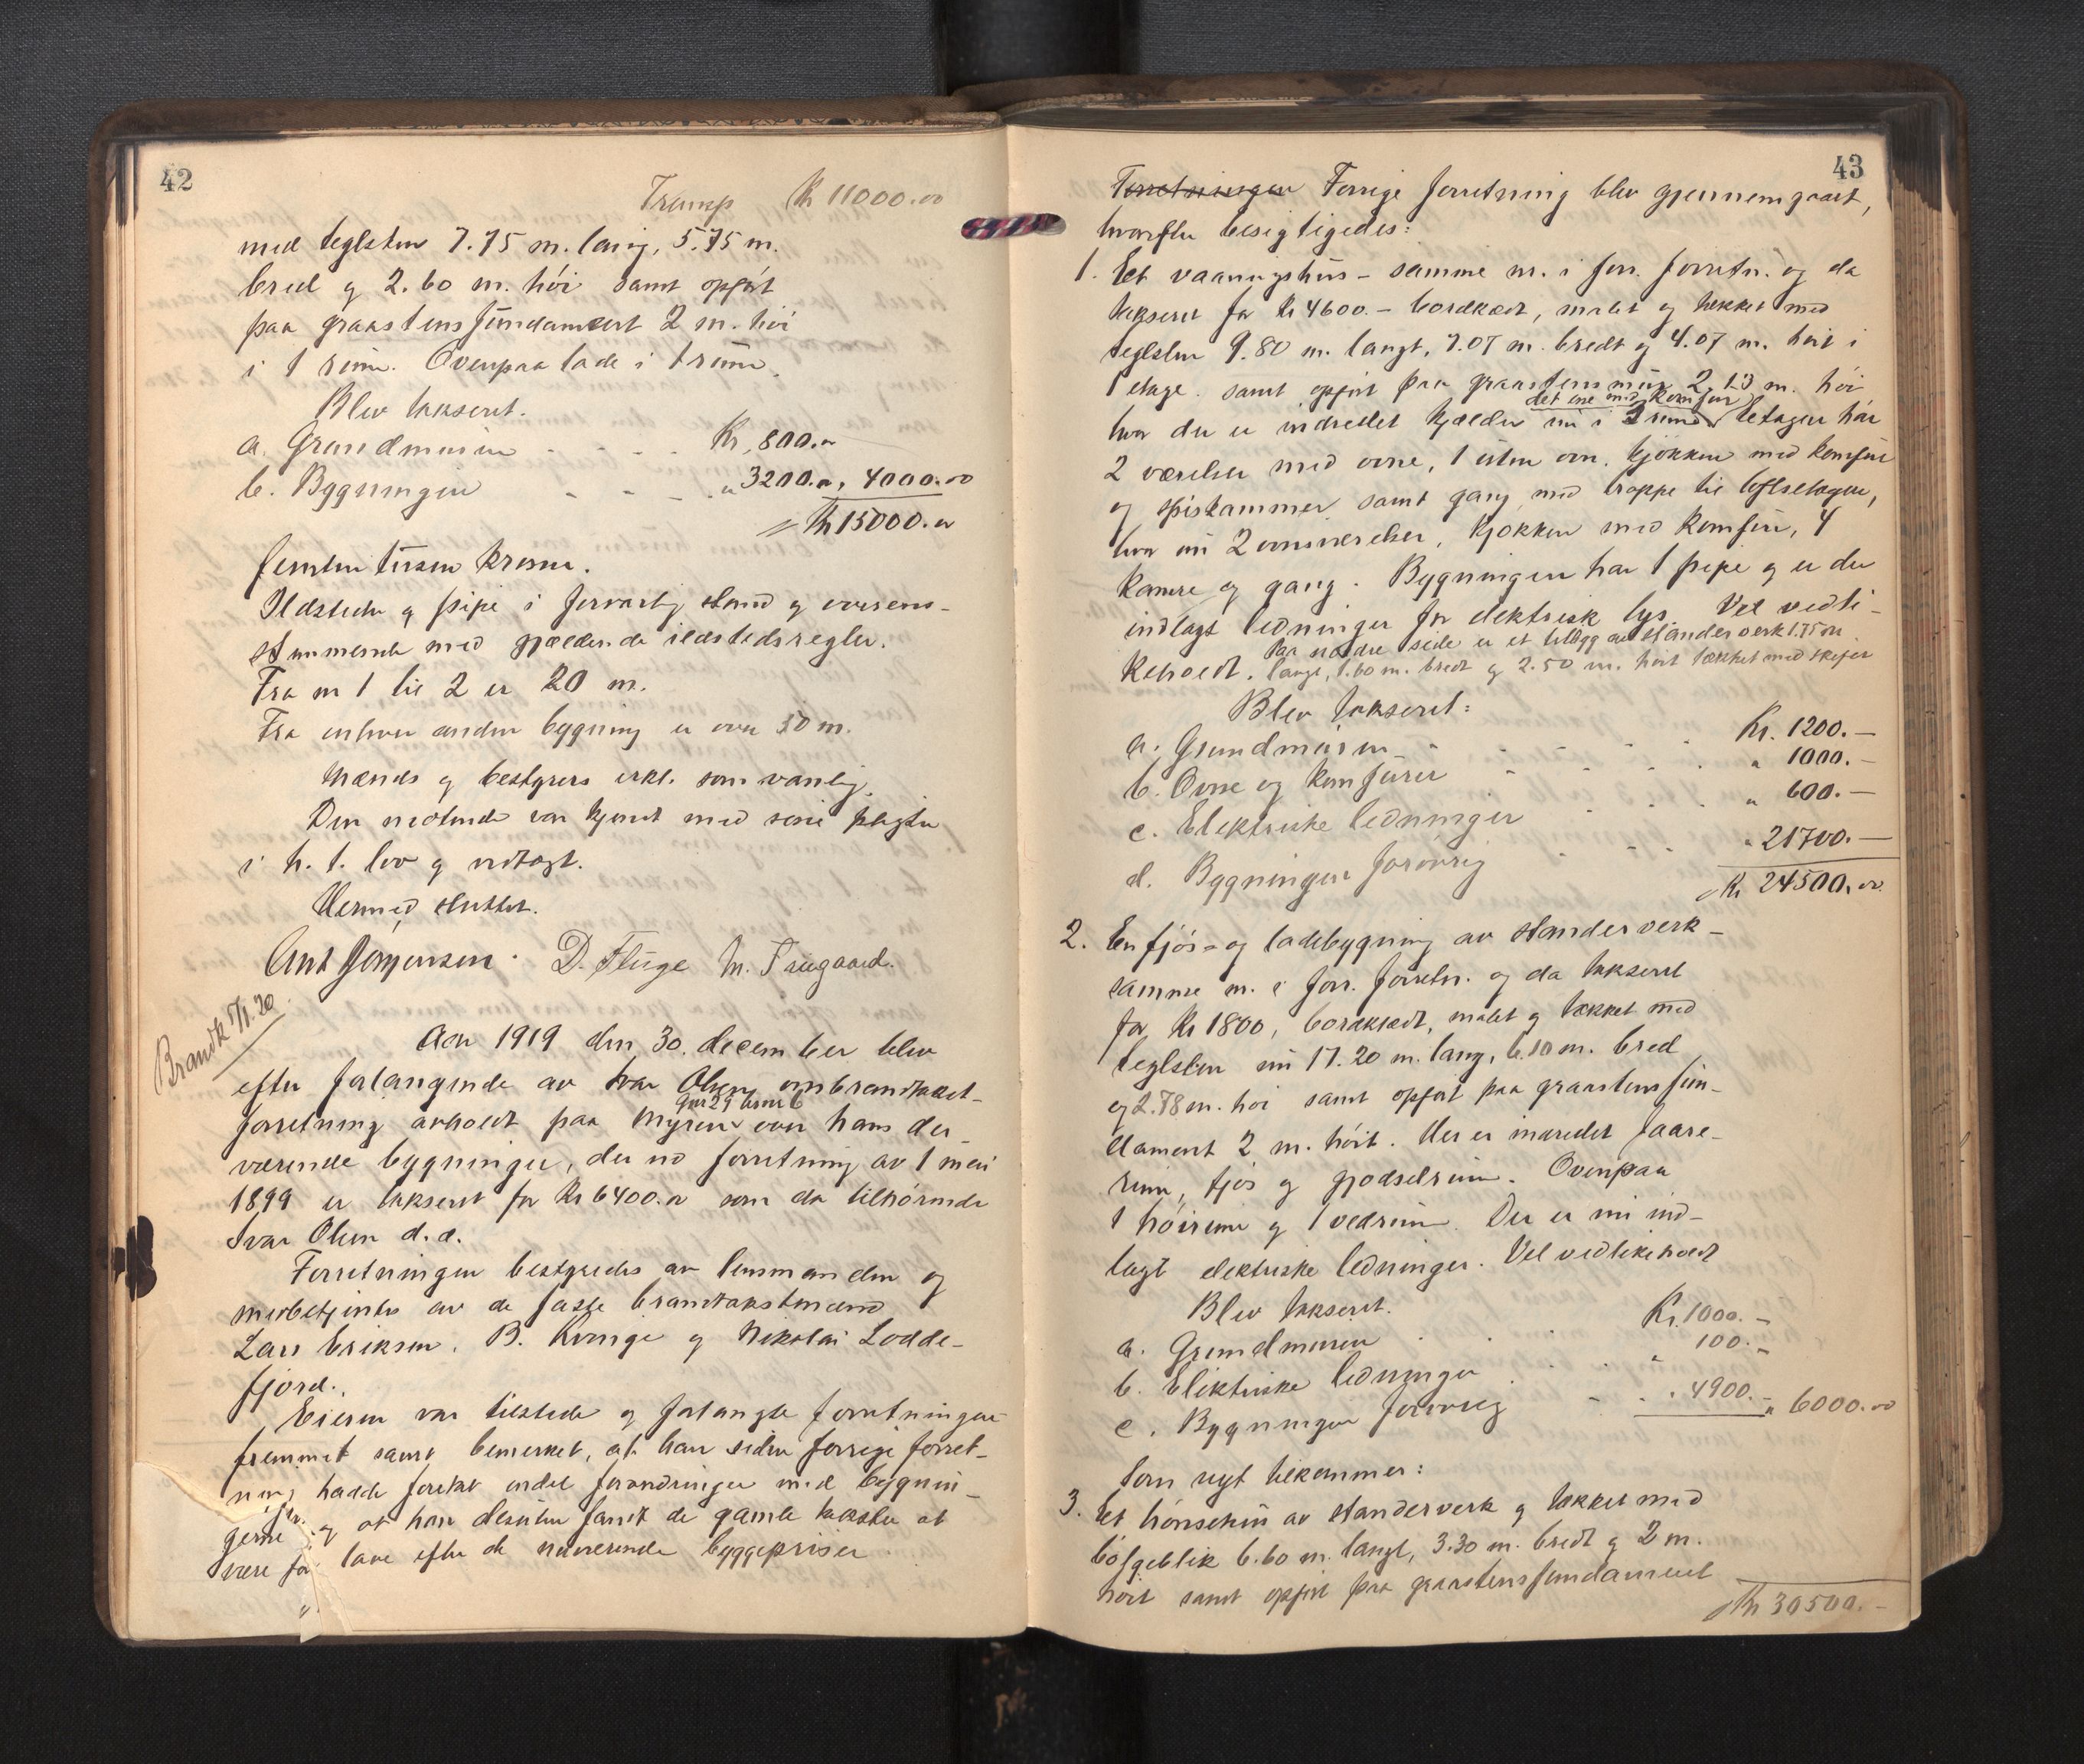 42
Transp Kr 11000.00
med teglsten 7.75 m. lang, 5.75 m.
bred og 2.60 m. høi samt opført
paa graastensfundament 2 m. høi
i 1 rum. Ovenpaa lade i 1 rum.
Blev takseret.
a. Grundmuren - - - - Kr. 800.00
b. Bygningen - - - " 3200.00, 4000.00
Kr 15000.00
femten tusen kroner.
Ildsteder og pipe i forsvarlig stand og overens-
stemmende med gjældende ildstedsregler.
Fra nr 1 til 2 er 20 m.
Fra enhver anden bygning er over 50 m.
Mænds og bestyrers erkl. som vanlig.
Den møtende var kjendt med sine pligter
i h. t. lov og vedtægt.
Hermed sluttet.
Ant Jørgensen. D. Fluge M. Truegaard.
Brandk 5/1.20
Aar 1919 den 30. december blev
efter forlangende av Ivar Olsen ombrandtakst-
gnr 29 brnr 6
forretning avholdt paa Myren over hans der-
værende bygninger, der ved forretning av 1 mai
1899 er takseret for Kr 6400.00 som da tilhørende
Ivar Olsen d. æ.
Forretningen bestyredes av lensmanden og
medbetjentes av de faste brandtakstmænd
Lars Eriksen, B. Kvinge og Nikolai Lodde-
fjord.
Eieren var tilstede og forlangte forretningen
fremmet samt bemerket, at han siden forrige forret-
ning hadde foretat endel forandringer med bygnin-
gerne og at han desuten fandt de gamle takster at
være for lave efter de nuværende byggepriser
43
Forretningen Forrige forretning blev gjennemgaaet,
hvorefter besigtigedes:
1. Et vaaningshus - samme nr. i forr. forretn. og da
takseret for Kr 4600.- bordklædt, malet og tækket med
teglsten 9.80 m. langt, 7.07 m. bredt og 4.07 m. høit i
1 etage. samt opført paa graastensmur 2.13 m. høi
det ene med komfur
hvor der er indredet kjælder nu i 3 rum. 1 etagen har
2 værelser med ovne, 1 uten ovn. kjøkken med komfur
og spiskammer samt gang med trappe til loftsetagen,
hvor nu 2 ovnsværelser, kjøkken med komfur, 4
kamre og gang. Bygningen har 1 pipe og er der
indlagt ledninger for elektrisk lys. Vel vedli-
Paa nordre side er et tillægg av standerverk 1.75 m
keholdt. langt, 1.60 m. bredt og 2.50 m. høit tækket med skifer
Blev takseret:
a. Grundmuren - - - - - Kr. 1200.-
b. Ovne og komfurer - - - - " 1000.-
c. Elektriske ledninger - - - " 600.-
d. Bygningen forøvrig - - - " 21700.-
Kr 24500.00
2. En fjøs- og ladebygning av standerverk -
samme nr. i forr. forretn. og da takseret
for Kr 1800, bordklædt, malet og tækket med
teglsten nu 17.20 m. lang, 6.10 m. bred
og 2.78 m. høi samt opført paa graastensfun-
dament 2 m. høit. Her er indredet faare-
rum, fjøs og gjødselrum. Ovenpaa
1 høirum og 1 vedrum. Der er nu ind-
lagt elektriske ledninger. Vel vedlikeholdt
Blev takseret.
a. Grundmuren - - - Kr. 1000.-
b. Elektriske ledninger - - " 100.-
c. Bygningen forøvrig - - " 4900.- " 6000.00
Som nyt tilkommer:
3. Et hønsehus av standerverk og tækket med
bølgeblik 6.60 m. langt, 3.30 m. bredt og 2 m.
høit samt opført paa graastensfundament
Kr 30500.-